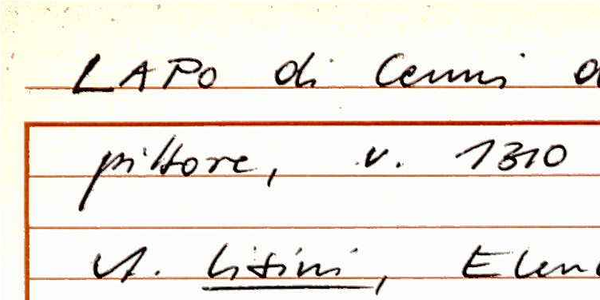 LAPO di Cenni d
pittore, v. 1310
A. Lisini, Elen